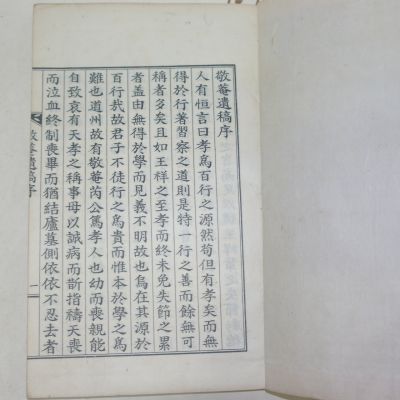 敬菴遺稿序
人有恒言曰孝爲百行之源然苟但有孝矣而無
得於行著習察之道則是特一行之善而餘無可
稱者多矣且如王祥之至孝而終未免失節之累
者蓋由無得於學而見義不明故也烏在其源於
百行哉故君子不徒行之爲貴而惟本於學之爲
難也道州故有敬菴芮公篤孝人也幼而喪親能
自致哀有天孝之稱事母以誠病而斷指禱天喪
而泣血終制喪畢而猶結廬墓側依依不忍去者
敬菴遺稿序
一